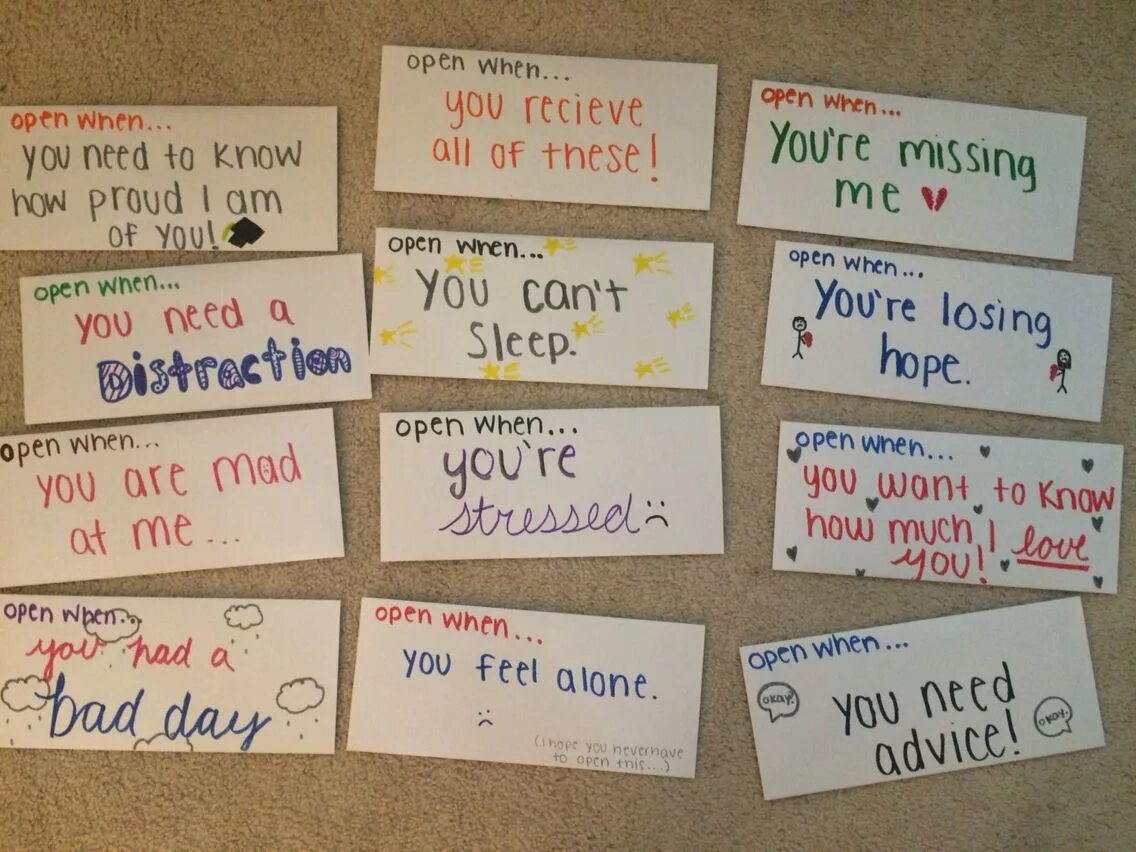 open when...
you need to know
how proud I am
of you!
open when...
you recieve
all of these!
open when...
You're missing
me
open when...
you need a
Distraction
open when...
You can't
Sleep.
open when...
You're losing
hope.
open when...
you are mad
at me...
open when...
you're
stressed
open when...
you want to know
how much I love
you!
open when...
you had a
bad day
open when...
you feel alone.
(I hope you never have
to open this...)
open when...
okay?
you need
advice!
okay.